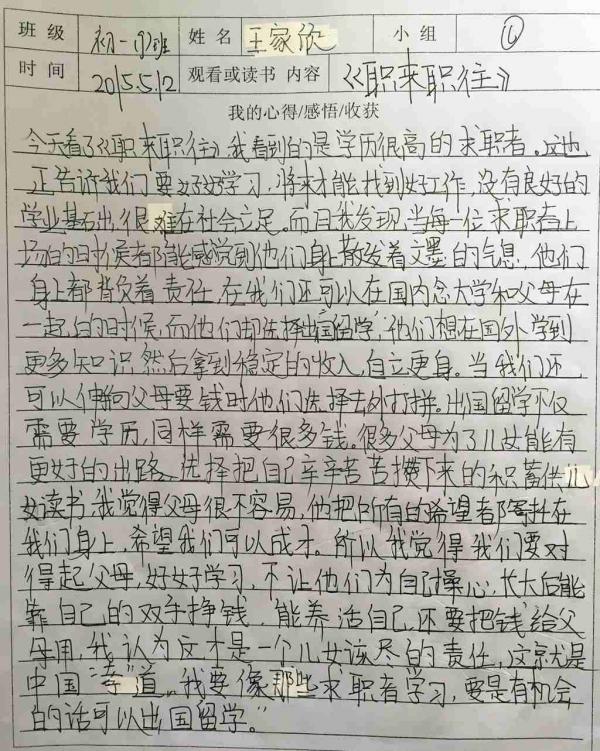 班级 初一(9)班 姓名 王家欣 小组
时间 2015.5.12 观看或读书 内容 《职来职往》
我的心得/感悟/收获
今天看了《职来职往》我看到的是学历很高的求职者。这也
正告诉我们要好好学习,将来才能找到好工作,没有良好的
学业基石出,很难在社会立足。而且我发现,当每一位求职者上
场的时候都能感觉到他们身上散发着文墨的气息,他们
身上都背负着责任,在我们还可以在国内念大学和父母在
一起的时候,而他们却选择出国留学,他们想在国外学到
更多知识,然后拿到稳定的收入,自立更身。当我们还
可以伸向父母要钱时他们选择去外打拼。出国留学不仅
需要学历,同样需要很多钱。很多父母为了儿女能有
更好的出路,选择把自己辛辛苦苦攒下来的积蓄供儿
女读书,我觉得父母很不容易,他把所有的希望都寄托在
我们身上,希望我们可以成才。所以我觉得我们要对
得起父母,好好学习,不让他们为自己操心,长大后能
靠自己的双手挣钱,能养活自己,还要把钱给父
母用,我认为这才是一个儿女该尽的责任,这就是
中国“孝”道。我要像那些求职者学习,要是有机会
的话可以出国留学。”